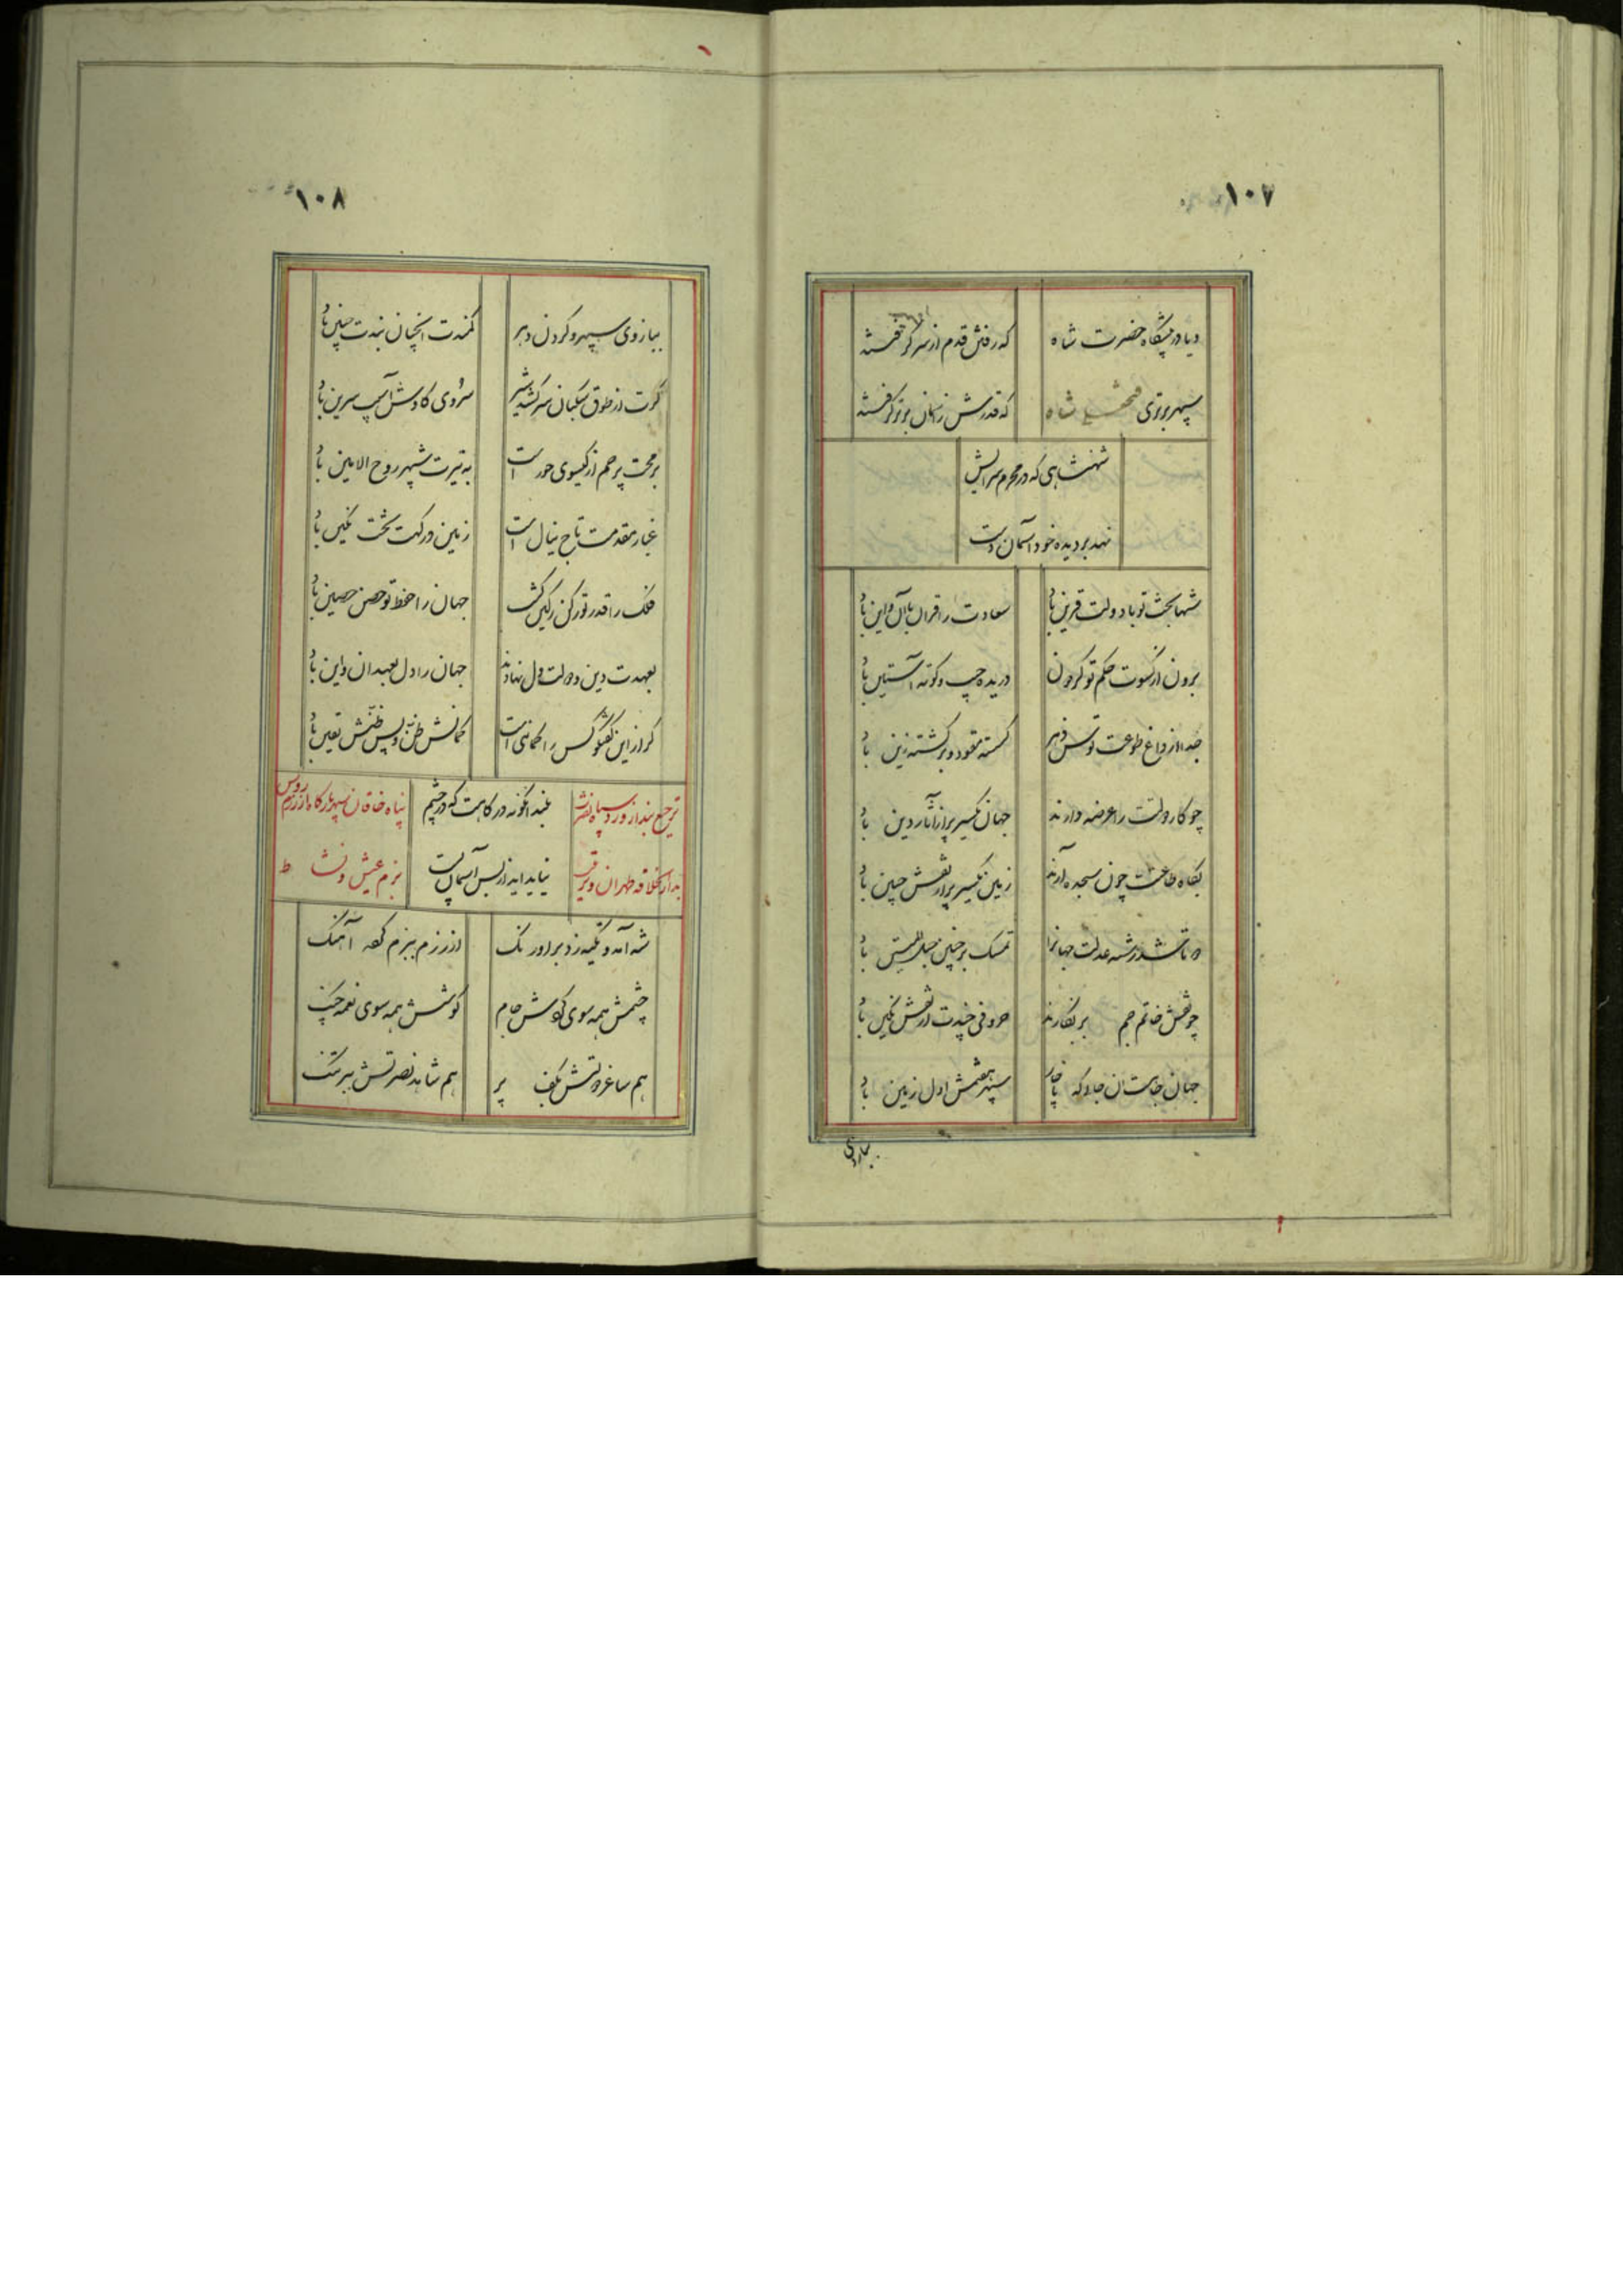 ۱۰۷
دیا در پیشگاه حضرت شاه
که رفتش قدم از سر گرفته
سپهر برتری فتحعلی شاه
که قدرش زآسمان برتر گرفته
شهنشاهی که در محرم سرایش
نهد بر دیده خود آسمان دست
شها بخت تو با دولت قرین باد
سعادت را قران با آن و این باد
برون از کسوت حکم تو گردون
دریده جیب و کوته آستین باد
جدا از داغ طوعت توسن دهر
گسسته مقود و برگشته زین باد
چو کار دولتت را عرضه دارند
جهان یکسر پر از آثار دین باد
بگاه طاعتت چون سجده آرند
زمین یکسر پر از نقش جبین باد
شد رشته عدلت جهانرا
تمسک بر چنین حبل المتین باد
چو نقش خاتم جم بر نگارند
حروفی چندت از نقش نگین باد
جهان جاهت آن جا که
سپهر هفتمش اول زمین باد
ببازوی
۱۰۸
ببازوی سپهر و گردن دهر
کمندت آنچنان بندت چنین باد
گرت از طوق سگبان سر کشد شیر
سروی گاوش آسیب سرین باد
برمحت پرچم از گیسوی حور است
به تیرت شهپر روح الامین باد
غبار مقدمت تاج ینال است
زمین درگهت تخت تکین باد
فلک را قدر تو رکن رکین گشت
جهان را حفظ تو حصن حصین باد
بعهدت دین و دولت دل نهادند
جهان را دل بعهد آن و این باد
گر از این گفتگو کس را گمانی است
گمانش ظن و پس ظنش یقین باد
ترجیع بند از ورود سپاه نصرت
بلند آنگونه درگاهت که در چشم
پناه خاقان سپهر بارگاه از رزم روس
بدارالخلافه طهران و ترتیب
نیاید اید از بس آسمان پست
بزم عیش و نشاط
شه آمد و تکیه زد بر اورنگ
از رزم ببزم کرده آهنگ
چشمش همه سوی گوش جام
گوشش همه سوی نغمه چنگ
هم ساغر دولتش بکف پر
هم شاهد نصرتش ببر تنگ